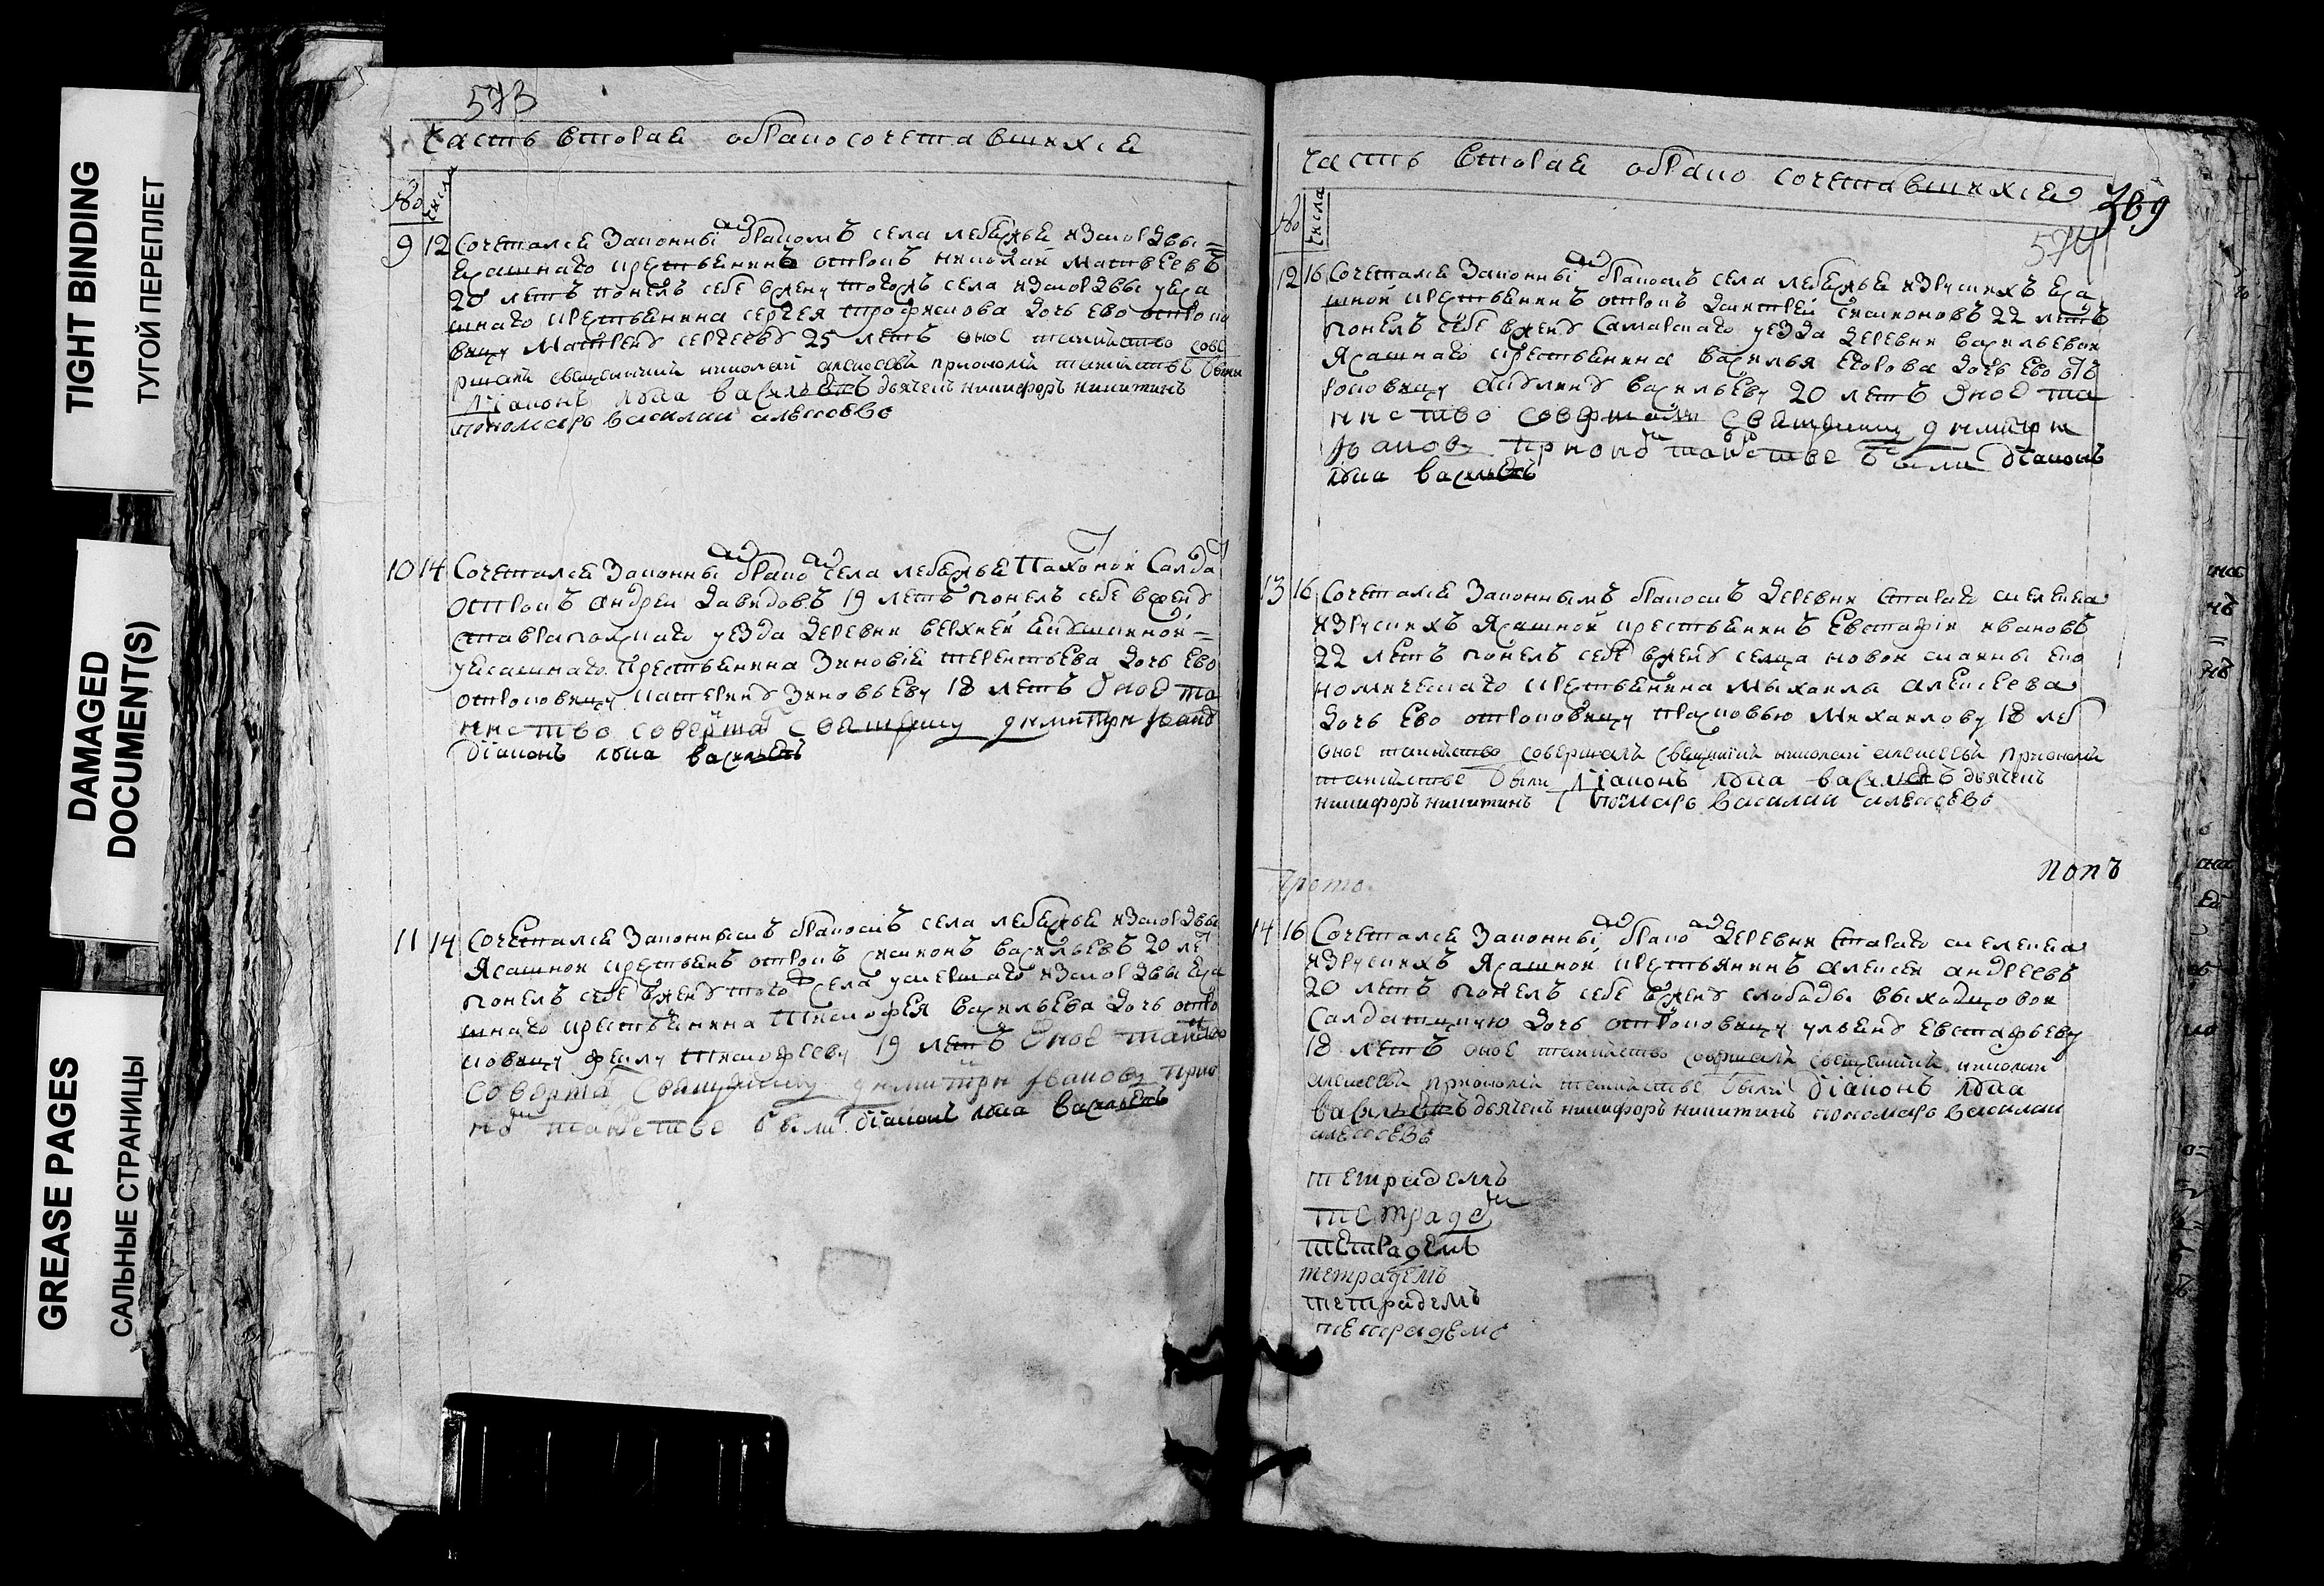 TIGHT BINDING
ТУГОЙ ПЕРЕПЛЕТ
DAMAGED
DOCUMENT(S)
GREASE PAGES
САЛЬНЫЕ СТРАНИЦЫ
573
часть вторая обракосочетавшихся
№ числа
9 12 Сочетался законны бракомъ села лебяжья измордвы =
ясашнаго крестьянинъ отрокъ николай матвеевъ
20 летъ понелъ себе вжену тогожъ села измордвы уяса
шнаго крестьянина сергея трофимова дочь ево отроко
вицу матрену сергееву 25 летъ оное таинство сове
ршали священикъ николай алексеевъ приономъ таинстве были
діаконъ лука васильевъ дьячекъ никифоръ никитинъ
пономарь василии алексеевъ
10 14 Сочетался законны брако села лебяжья пахоной салда
отрокъ андреи давидовъ 19 летъ понелъ себе вжену
ставраполскаго уезда деревни верхней
уясашнаго крестьянина зиновія терентьева дочь ево
отроковицу катерину зиновьеву 18 летъ оное та
инство соверша священику димитри Иано
діаконъ лука васильевъ
11 14 Сочетался законнымъ бракомъ села лебяжья измордвы
ясашной крестьянъ отрокъ симионъ васильевъ 20 ле
понелъ себе вжену того села умершаго измордвы яса
шнаго крестьянина тимофея васильева дочь отро
ковицу феклу тимофееву 19 летъ оное таинство
соверша священику димитри Иванову прио
но таинстве были діаконъ лука васильевъ
часть вторая обрако сочетавшихся
369
574
№ числа
12 16 Сочетался законны бракомъ села лебяжья изрускихъ яса
шной крестьянинъ отрокъ дмитреи симионовъ 22 летъ
понелъ себе вжену самарскаго уезда деревни васильевки
ясашнаго крестьянина василья егорова дочь ево от
роковицу акулину васильеву 20 летъ оное та
инство совершали священику димитри
Иванову приономъ таинстве были діаконъ
лука васильевъ
13 16 Сочетался законнымъ бракомъ деревни старато
изрускихъ ясашной крестьянинъ евстафіи ивановъ
22 летъ понелъ себе вжену селца новои еко
номическаго крестьянина михаила алексеева
дочь ево отроковицу прасковью михаилову 18 ле
оное таинство совершалъ священикъ николай алексеевъ приономъ
таинстве были діаконъ лука васильевъ дьячекъ
никифоръ никитинъ пономарь василии алексеевъ
попъ
прото
14 16 Сочетался законны брако деревни старато
изрускихъ ясашной крестьянинъ алексеи андреевъ
20 летъ понелъ себе вжену слободы
салдатскую дочь отроковицу ульяну евстафьеву
18 летъ оное таинство совершалъ священикъ николаи
алексеевъ приономъ таинстве были діаконъ лука
васильевъ дьячекъ никифоръ никитинъ пономарь василии
алексеевъ
тетрадемъ
тетраде
тетрадемъ
тетрадемъ
тетрадемъ
тетрадемъ